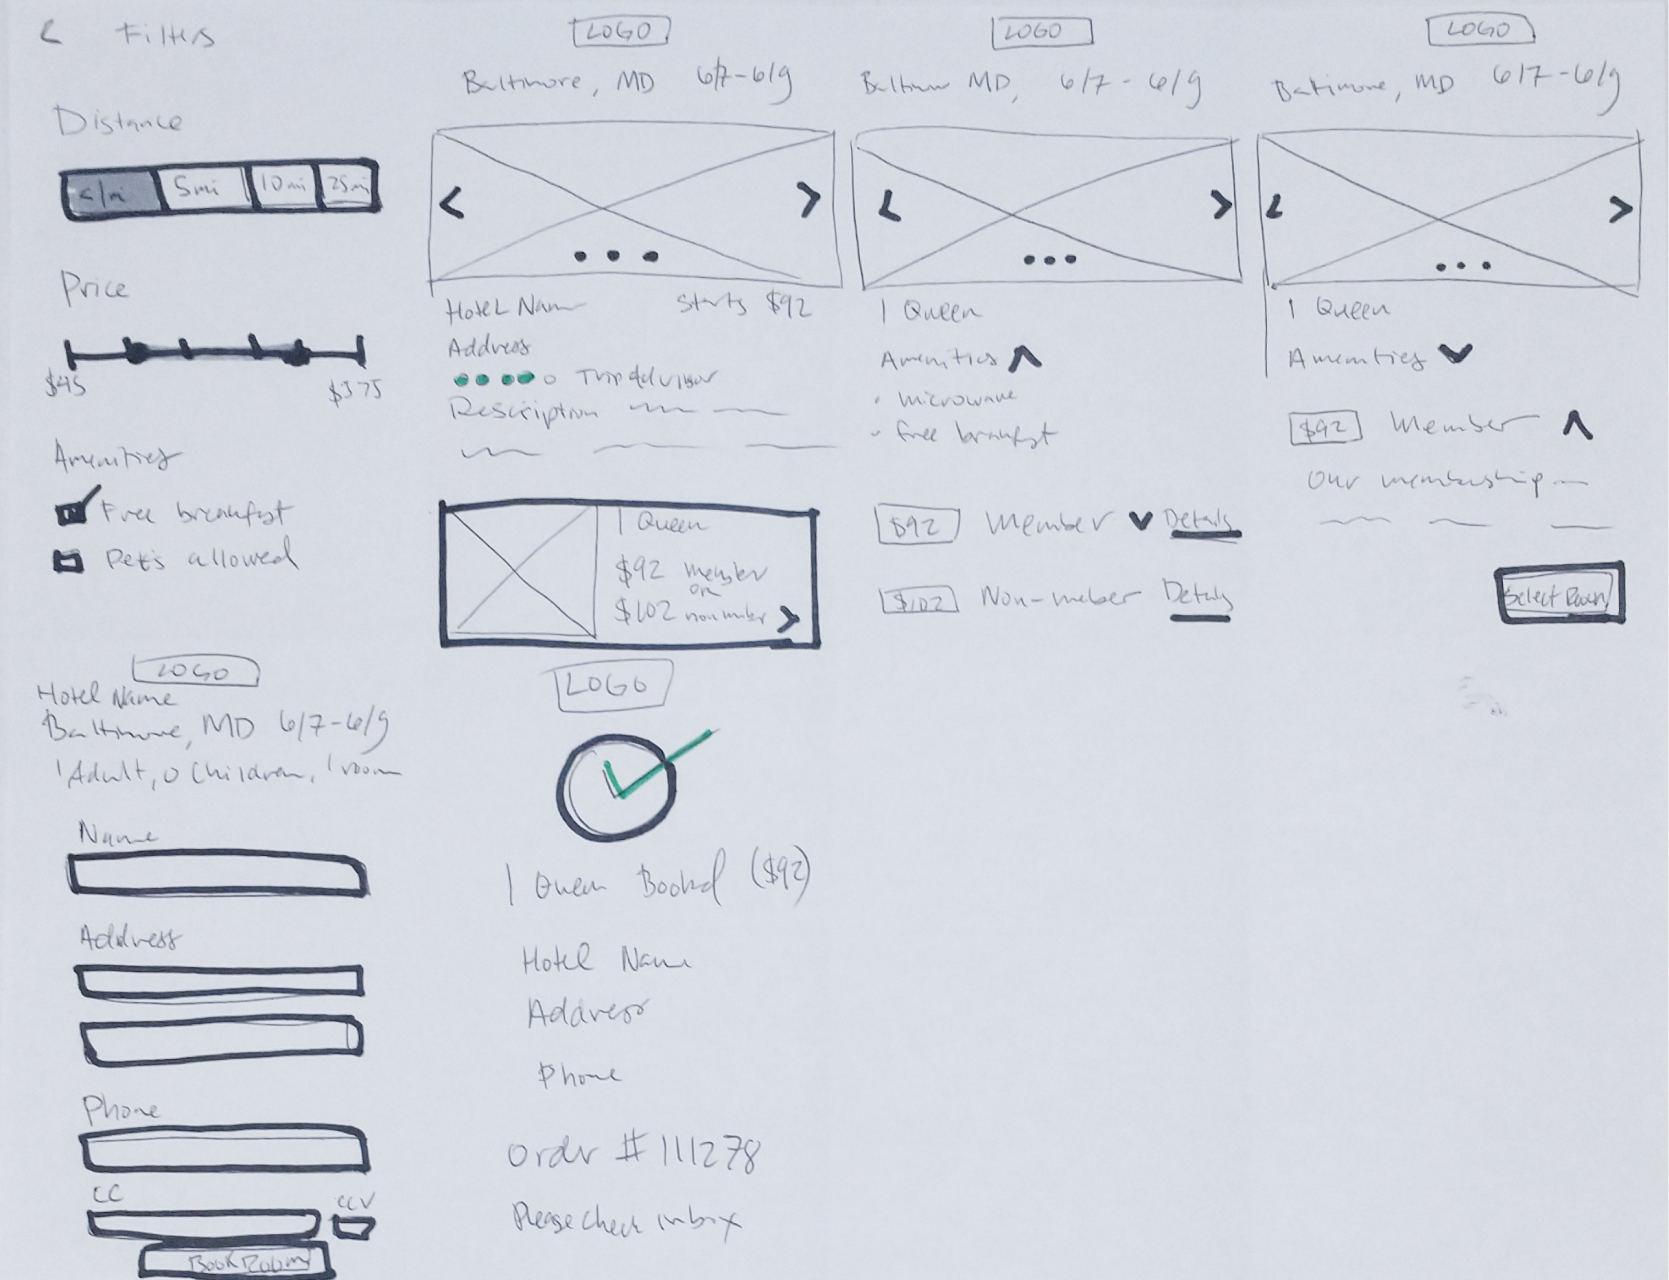 < Filters
Distance
<1mi 5mi 10mi 25mi
Price
$45 $375
Amenities
Free breakfast
Pets allowed
LOGO
Baltimore, MD 6/7-6/9
Hotel Name Starts $92
Address
TripAdvisor
Description
1 Queen
$92 member
or
$102 nonmember
LOGO
Baltimore MD, 6/7-6/9
1 Queen
Amenities
• microwave
• Free breakfast
$92 Member Details
$102 Non-member Details
LOGO
Baltimore, MD 6/7-6/9
1 Queen
Amenities
$92 Member
Our membership...
Select Room
LOGO
Hotel Name
Baltimore, MD 6/7-6/9
1 Adult, 0 Children, 1 room
Name
Address
Phone
CC CCV
Book Room
LOGO
1 Queen Booked ($92)
Hotel Name
Address
Phone
Order # 111278
Please check inbox